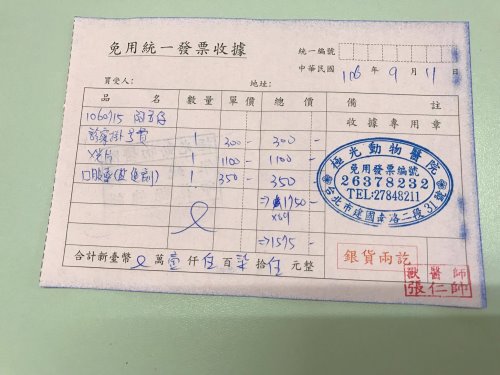 免用統一發票收據
統一編號
中華民國 106 年 9 月 11 日
買受人： 地址：
品名 數量 單價 總價 備註
1060915
收據專用章
診察掛号費 1 300- 300-
X光片 1 1100- 1100-
口服藥 1 350- 350
⇒ 1750-
x0.9
⇒1575-
極光動物醫院
免用發票編號
26378232
TEL:27848211
台北市建國南路二段31號
合計新臺幣 萬壹仟伍百柒拾伍元整
銀貨兩訖
獸醫師
張仁帥